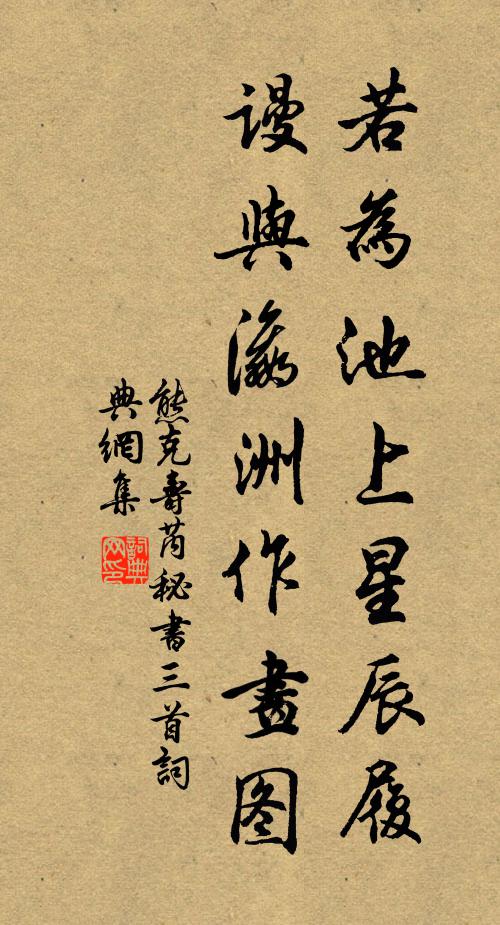 若為池上星辰履
謾與瀛洲作畫圖
熊克壽芮秘書三首詞
典網集
詞典
网印